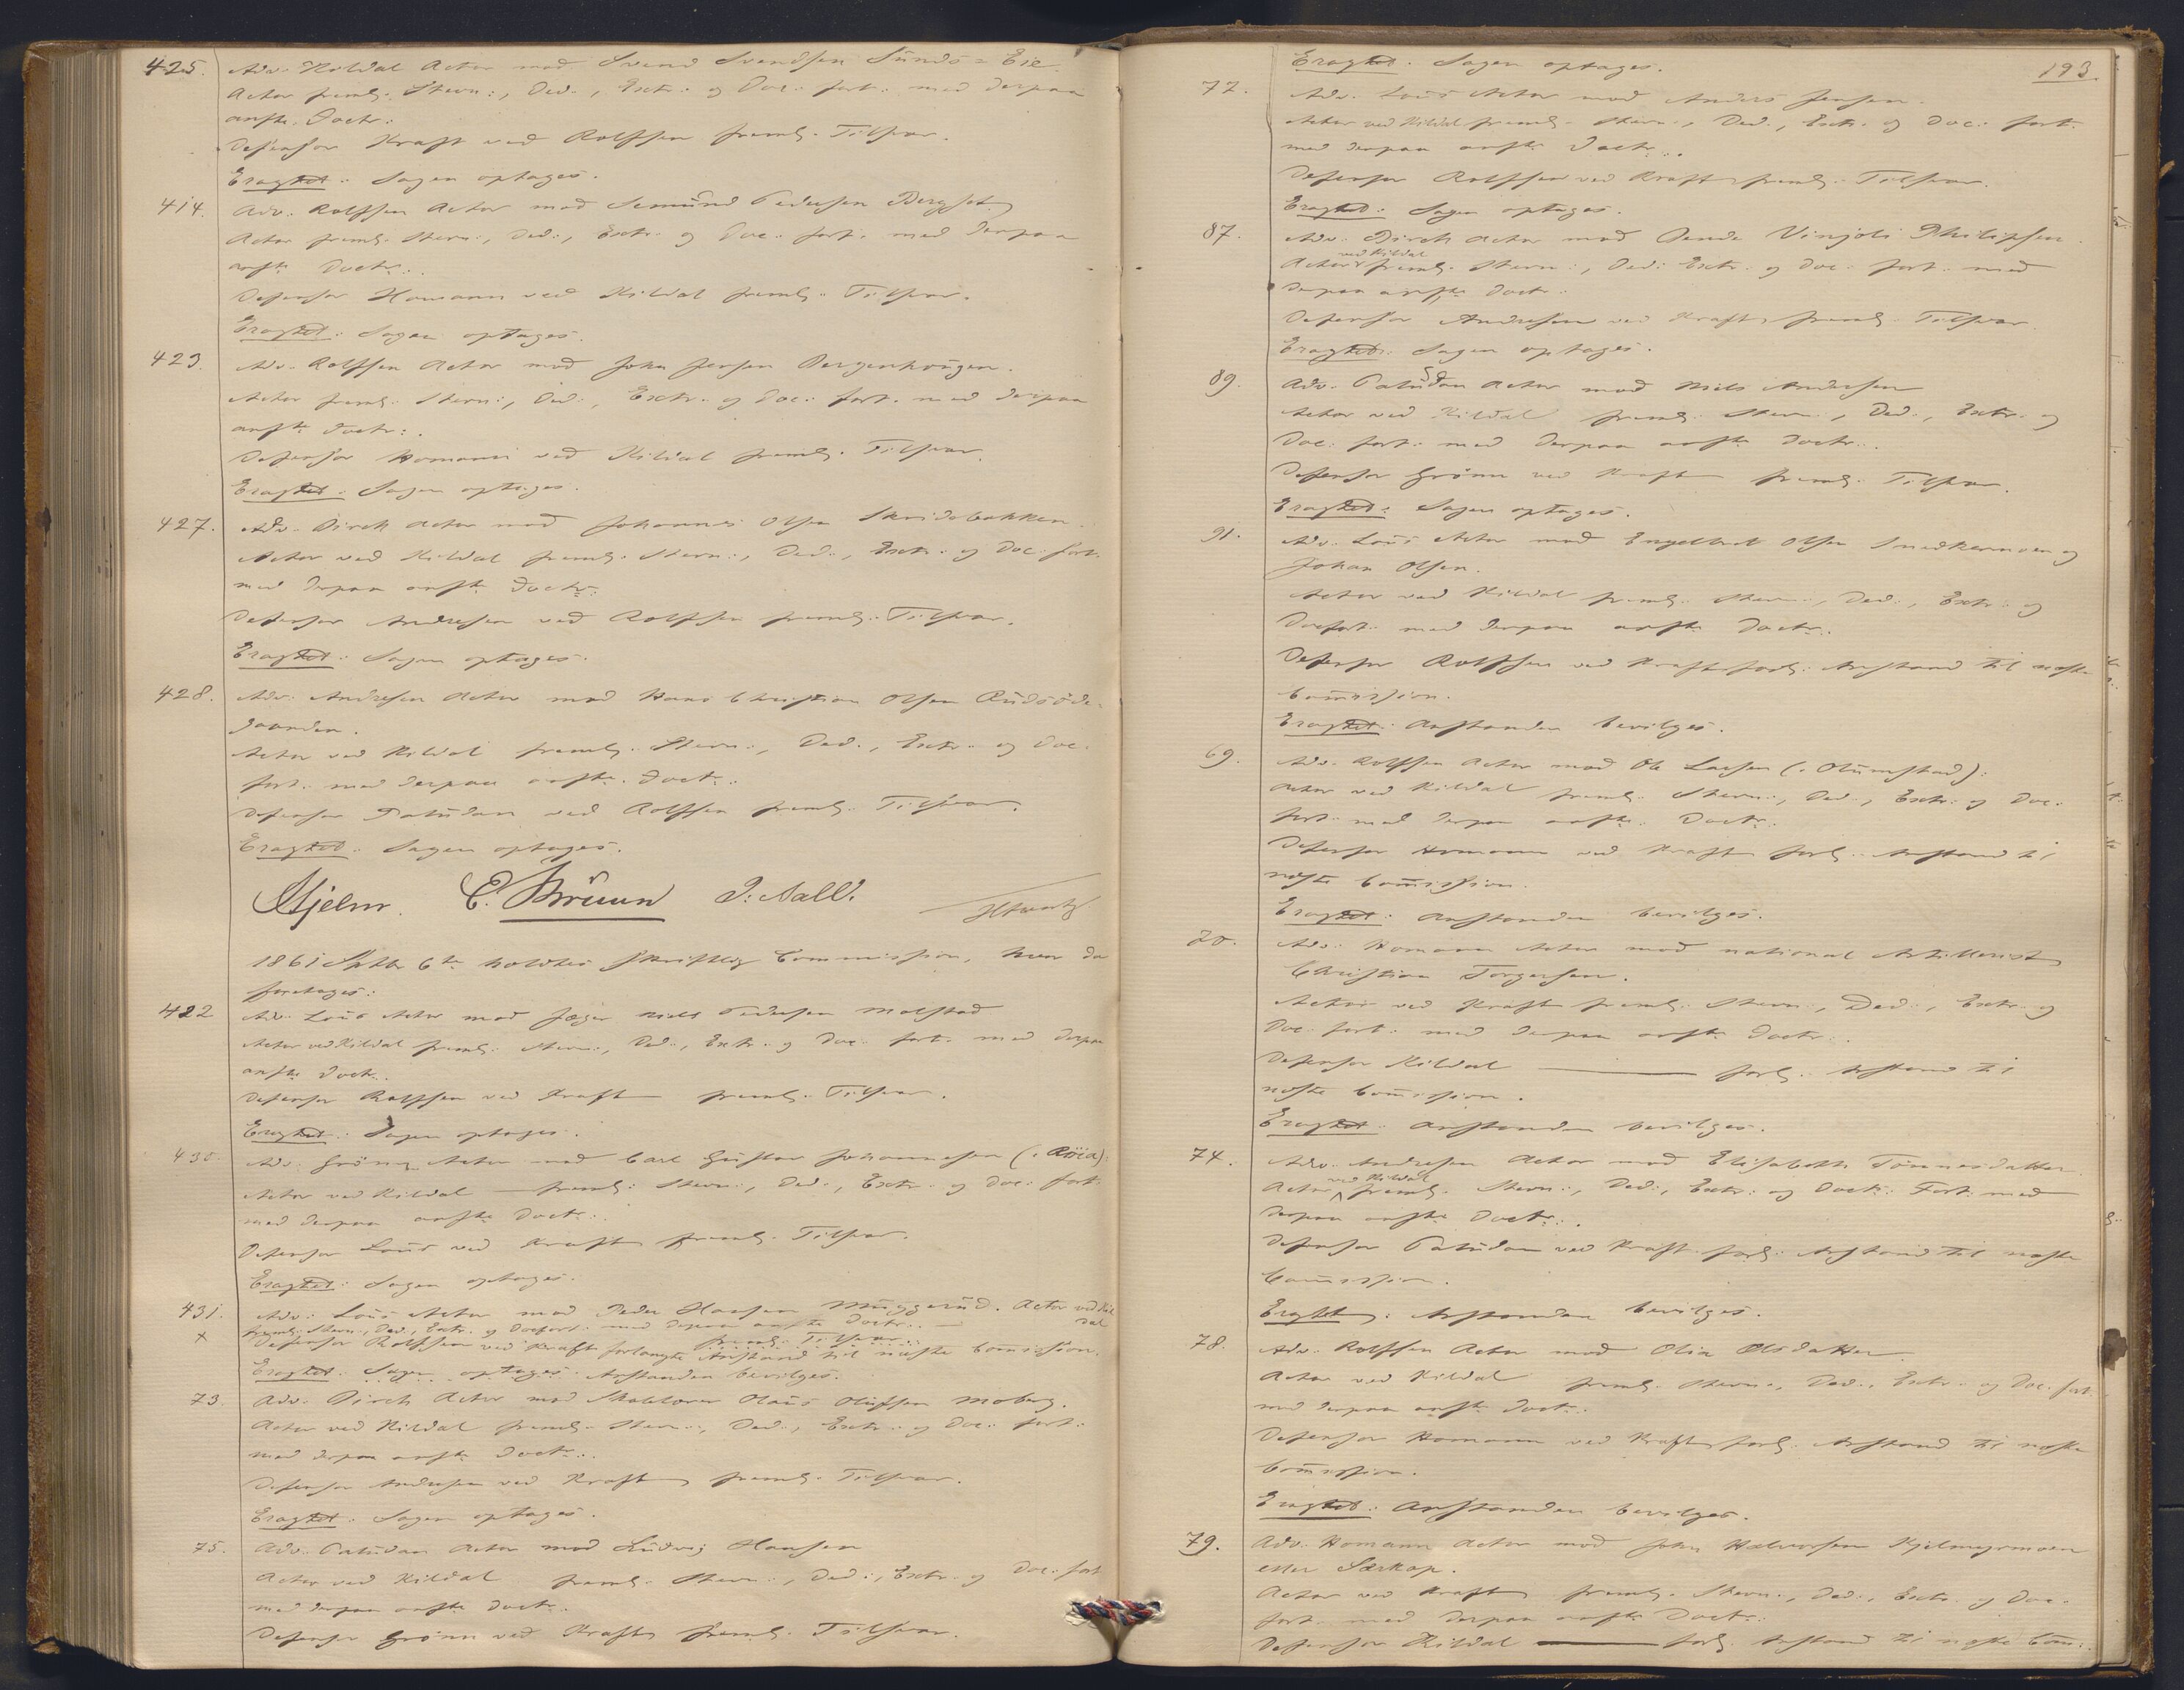 425. Adv. Kildal Actor mod Svend Svendsen Sunds-Eie.
Actor freml. Stevn:, Ded:, Extr: og Doc: fort: med derpaa
anfte Doctr:
Defensor Kraft ved Rolfsen freml: Tilsvar.
Eragtet: Sagen optages.
414. Adv. Rolfsen Actor mod Semund Pedersen Bergset
Actor freml. Stevn:, Ded:, Extr: og Doc: fort: med derpaa
anfte Doctr:.
Defensor Homann ved Kildal freml: Tilsvar.
Eragtet: Sagen optages.
423. Adv. Rolfsen Actor mod John Jensen Bergenhougen.
Actor freml. Stevn:, Ded:, Extr: og Doc: fort: med derpaa
anfte Doctr:.
Defensor Homann ved Kildal freml: Tilsvar.
Eragtet: Sagen optages.
427. Adv. Birch Actor mod Johannes Olsen Skridebakken.
Actor ved Kildal freml. Stevn:, Ded:, Extr: og Doc: fort:
med derpaa anfte Doctr:
Defensor Andresen ved Rolfsen freml: Tilsvar.
Eragtet: Sagen optages.
428. Adv. Andresen Actor mod Hans Christian Olsen Rudsöde-
gaarden.
Actor ved Kildal freml. Stevn:, Ded:, Extr: og Doc:
fort: med derpaa anfte Doctr:
Defensor Paludan ved Rolfsen freml: Tilsvar.
Eragtet: Sagen optages.
Hjelm. E. Bruun J: Aall.
1861 Septbr 6te holdtes skriftlig Commission, hvor da
foretoges:
422 Adv. Lous Actor mod Jæger Niels Pedersen Molstad
Actor ved Kildal freml. Stevn:, Ded:, Extr: og Doc: fort: med derpaa
anfte Doctr:.
Defensor Rolfsen ved Kraft freml: Tilsvar.
Eragtet: Sagen optages.
430. Adv. Grönn Actor mod Carl Gustav Johannesen
Actor ved Kildal freml: Stevn:, Ded:, Extr: og Doc: fort:
med derpaa anfte Doctr:.
Defensor Lous ved Kraft freml: Tilsvar.
Eragtet: Sagen optages.
431. Adv. Lous Actor mod Peder Hansen Muggerud. Actor ved Kil
dal
x freml. Stevn:, Ded:, Extr: og Docfort: med derpaa anfte Doctr:.
freml: Tilsvar.
Defensor Rolfsen ved Kraft forlangte Anstand til næste Comission.
Eragtet: Sagen optages. Anstanden bevilges.
73. Adv. Birch Actor mod Olaus Olufsen Moberg.
Actor ved Kildal freml. Stevn:, Ded:, Extr: og Doc: fort:
med derpaa anfte Doctr:.
Defensor Andresen ved Kraft freml: Tilsvar.
Eragtet: Sagen optages.
75. Adv. Paludan Actor mod Ludvig Hansen
Actor ved Kildal freml. Stevn:, Ded:, Extr: og Doc: fort
med derpaa anfte Doctr:.
Defensor Grönn ved Kraft freml: Tilsvar.
193.
Eragtet: Sagen optages.
77. Adv. Lous Actor mod Anders Jensen.
Actor ved Kildal freml. Stevn:, Ded:, Extr: og Doc: fort:
med derpaa anfte Doctr:.
Defensor Rolfsen ved Kraft freml: Tilsvar.
Eragtet: Sagen optages.
87. Adv. Birch Actor mod Philipsen.
ved Kildal
Actor freml. Stevn:, Ded: Extr: og Doc: fort: med
derpaa anfte Doctr:
Defensor Andresen ved Kraft freml: Tilsvar.
Eragtet: Sagen optages.
89. Adv. Paludan Actor mod Niels Andersen
Actor ved Kildal freml. Stevn:, Ded:, Extr: og
Doc: fort: med derpaa anfte Doctr:.
Defensor Grönn ved Kraft freml: Tilsvar.
Eragtet: Sagen optages.
91. Adv. Lous Actor mod Engelbret Olsen Snedkermoen og
Johan Olsen.
Actor ved Kildal freml. Stevn:, Ded:, Extr: og
Docfort: med derpaa anfte Doctr:.
Defensor Rolfsen ved Kraft forl: Anstand til næste
Comission.
Eragtet: Anstanden bevilges.
69. Adv. Rolfsen Actor mod Ole Larsen (: Olumstad):
Actor ved Kildal freml. Stevn:, Ded:, Extr: og Doc:
fort: med derpaa anfte Doctr:.
Defensor Homann ved Kraft forl: Anstand til
næste Comission.
Eragtet: Anstanden bevilges.
70. Adv. Homann Actor mod national Artillerist
Christian Torgersen.
Actor ved Kraft freml. Stevn:, Ded:, Extr: og
Doc: fort: med derpaa anfte Doctr:.
Defensor Kildal forl: Anstand til
næste Comission.
Eragtet: Anstanden bevilges.
74. Adv. Andresen Actor mod Elisabeth Tönnesdatter
ved Kildal
Actor freml. Stevn:, Ded:, Extr: og Doctr: Fort: med
derpaa anfte Doctr:.
Defensor Paludan ved Kraft forl: Anstand til næste
Comission.
Eragtet: Anstanden bevilges.
78. Adv. Rolfsen Actor mod Olia Olsdatter
Actor ved Kildal freml. Stevn:, Ded:, Extr: og Doc: fort:
med derpaa anfte Doctr:.
Defensor Homann ved Kraft forl: Anstand til næste
Comission.
Eragtet: Anstanden bevilges.
79. Adv. Homann Actor mod John Halvorsen Kjelmyrmoen
eller Særkop.
Actor ved Kraft freml. Stevn:, Ded:, Extr: og Doc:
fort: med derpaa anfte Doctr:.
Defensor Kildal forl: Anstand til næste Com: